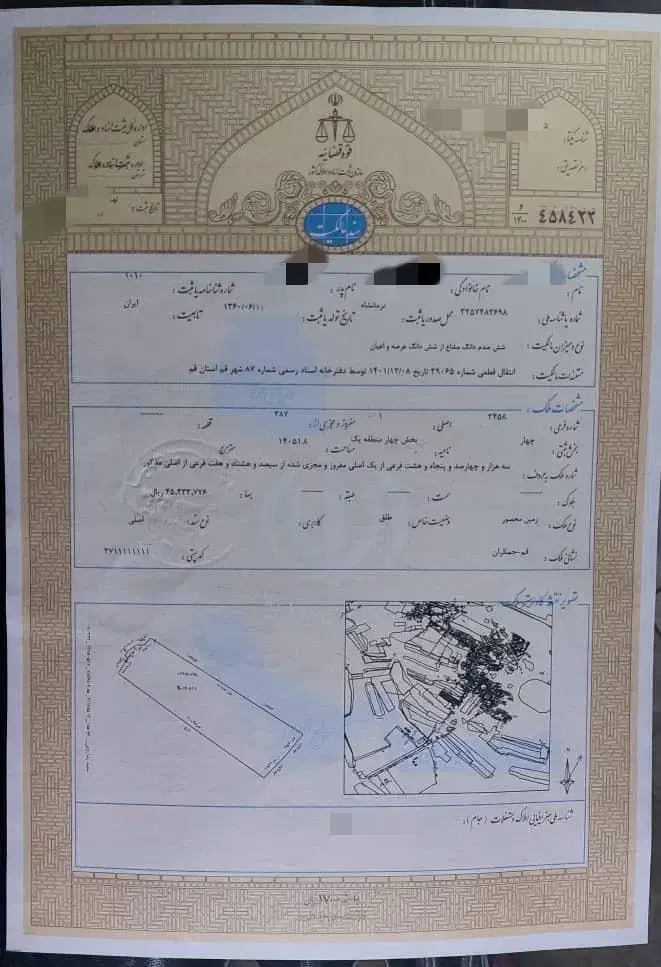 اداره کل ثبت اسناد و املاک
استان:
اداره ثبت اسناد و املاک
شهرستان:
تاریخ ثبت:
قوه قضائیه
سازمان ثبت اسناد و املاک کشور
شناسه یکتا:
رمز تصدیق:
سند مالکیت
۴۵۸۴۲۲
و
۱۴۰۰
نام: نام خانوادگی: نام پدر: شماره شناسنامه یا ثبت: ۱۰۱۰
شماره یا شناسه ملی: ۳۲۵۷۴۸۲۶۹۸ محل صدور یا ثبت: کرمانشاه تاریخ تولد یا ثبت: ۱۳۶۰/۰۶/۱۱ تابعیت: ایران
نوع و میزان مالکیت: شش صدم دانگ مشاع از شش دانگ عرصه و اعیان
مستندات مالکیت: انتقال قطعی شماره ۳۹۰۶۵ تاریخ ۱۴۰۱/۱۲/۰۸ توسط دفترخانه اسناد رسمی شماره ۸۷ شهر قم استان قم
مشخصات ملک:
شماره فرعی: ۳۴۵۸ اصلی: ۱ مفروز و مجزی از: ۳۸۷ قطعه: --------
بخش ثبتی: چهار ناحیه: بخش چهار منطقه یک مساحت: ۱۴۰۵۱.۸ مترمربع
شماره ملک به حروف: سه هزار و چهارصد و پنجاه و هشت فرعی از یک اصلی مفروز و مجزی شده از سیصد و هشتاد و هفت فرعی از اصلی مذکور
بلوک: -------- سمت: -------- طبقه: -------- بها: ۴۵,۴۳۳,۷۷۶ ریال
نوع ملک: زمین محصور وضعیت خاص: طلق کاربری: نوع سند: اصلی
نشانی ملک: قم-جمکران کد پستی: ۳۷۱۱۱۱۱۱۱۱
تصویر نقشه کاداستر ملک
شناسه ملی جغرافیایی املاک و مستغلات (جام):